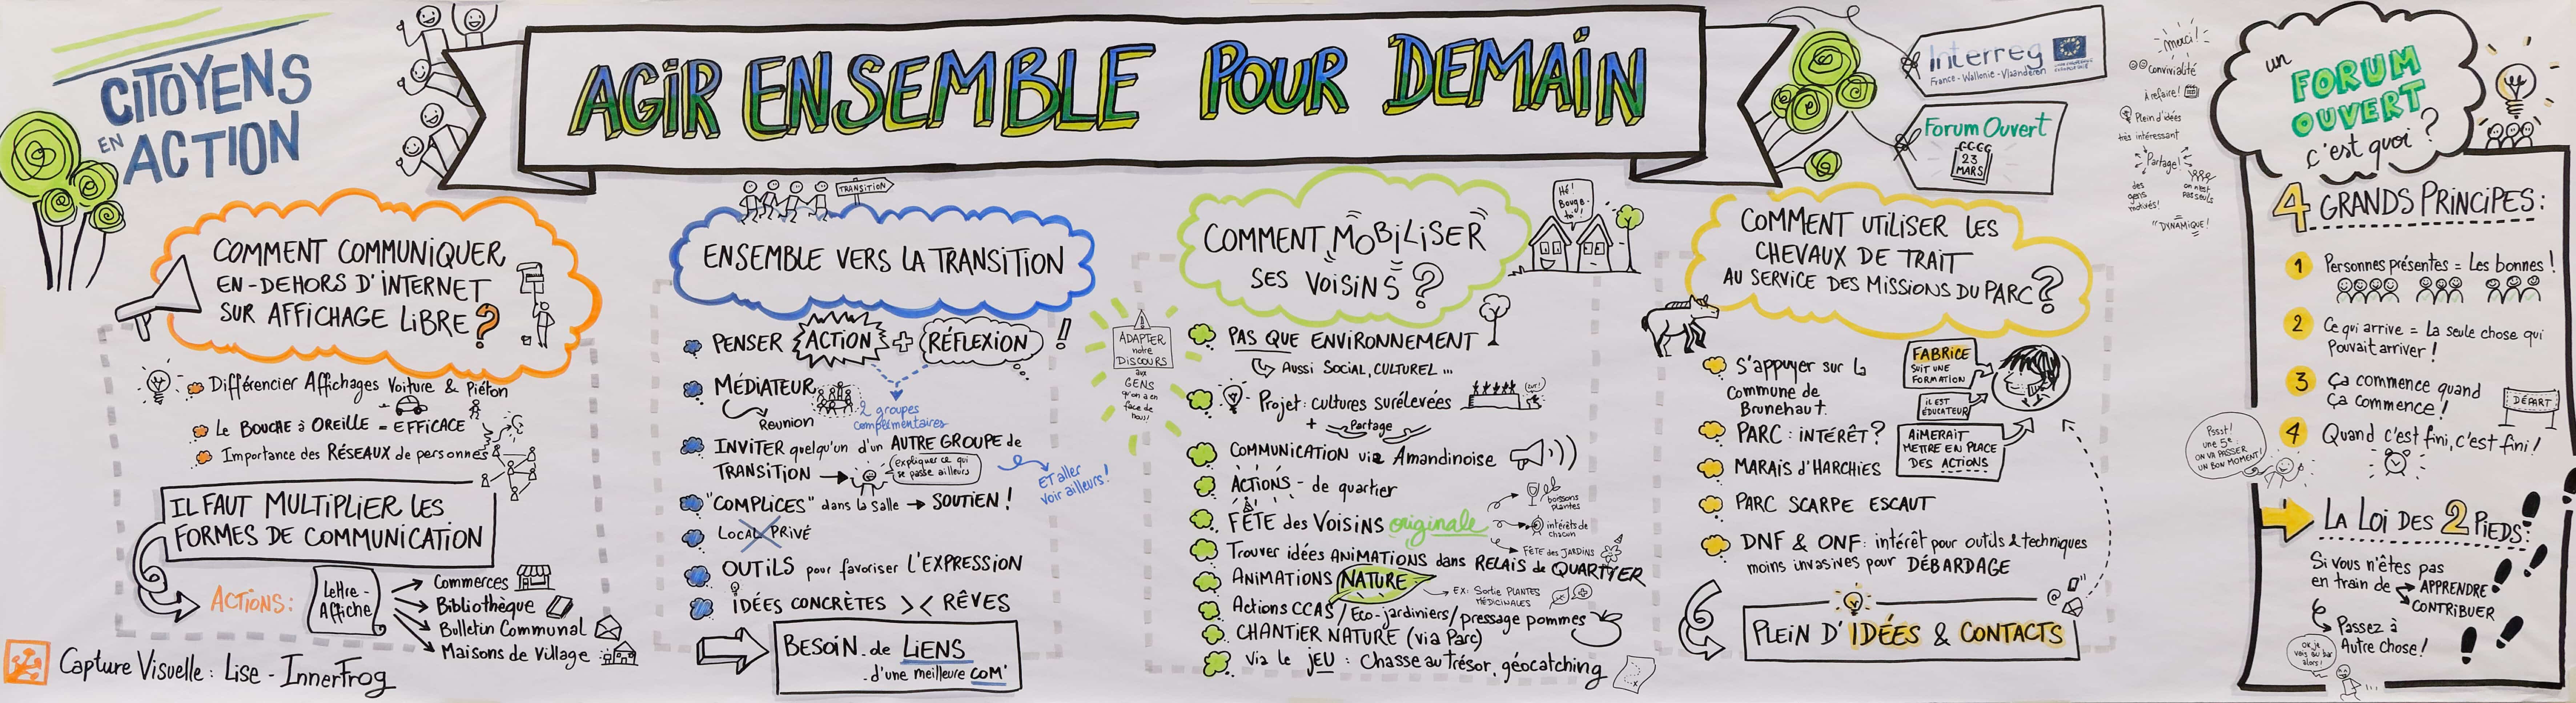 CITOYENS
EN
ACTION
AGIR ENSEMBLE POUR DEMAIN
Interreg
France - Wallonie - Vlaanderen
Forum Ouvert
23
MARS
Merci!
Convivialité
à refaire!
Plein d'idées
très intéressant
Partage!
des
gens
motivés!
on n'est
pas seuls
"DYNAMIQUE!
COMMENT COMMUNIQUER
EN-DEHORS D'INTERNET
SUR AFFICHAGE LIBRE ?
Différencier Affichages Voiture & Piéton
Le BOUCHE à OREILLE = EFFICACE
Importance des RÉSEAUX de personnes
IL FAUT MULTIPLIER LES
FORMES DE COMMUNICATION
ACTIONS:
Lettre-
Affiche
Commerces
Bibliothèque
Bulletin Communal
Maisons de Village
Capture Visuelle: Lise - InnerFrog
TRANSITION
ENSEMBLE VERS LA TRANSITION
PENSER ACTION + RÉFLEXION !
MÉDIATEUR
Réunion
2 groupes
complémentaires
INVITER quelqu'un d'un AUTRE GROUPE de
TRANSITION
expliquer ce qui
se passe ailleurs
ET aller
voir ailleurs!
"COMPLICES" dans la salle → SOUTIEN!
LOCAL PRIVÉ
OUTILS pour favoriser L'EXPRESSION
IDÉES CONCRÈTES >< RÊVES
BESOIN de LIENS
d'une meilleure COM'
ADAPTER
notre
DISCOURS
aux
GENS
qu'on a en
face de
nous!
Hé!
Bouge-
toi!
COMMENT MOBILISER
SES VOISINS ?
PAS QUE ENVIRONNEMENT
AUSSI SOCIAL, CULTUREL ...
Projet: cultures surélevées
+ Partage
COMMUNICATION via Amandinoise
ACTIONS - de quartier
FÊTE des VOISINS originale
boissons
plantes
intérêts de
chacun
FÊTE des JARDINS
Trouver idées ANIMATIONS dans RELAIS de QUARTIER
ANIMATIONS NATURE
EX: Sortie PLANTES
MÉDICINALES
Actions CCAS / Eco-jardiniers/ pressage pommes
CHANTIER NATURE (via Parc)
Via le JEU : Chasse au trésor, géocatching
COMMENT UTILISER LES
CHEVAUX DE TRAIT
AU SERVICE DES MISSIONS DU PARC ?
S'appuyer sur la
Commune de
Brunehaut.
FABRICE
SUIT UNE
FORMATION
IL EST
ÉDUCATEUR
AIMERAIT
METTRE EN PLACE
DES ACTIONS
PARC : INTÉRÊT ?
MARAIS d'HARCHIES
PARC SCARPE ESCAUT
DNF & ONF: intérêt pour outils & techniques
moins invasives pour DÉBARDAGE
PLEIN D'IDÉES & CONTACTS
un
FORUM
OUVERT
c'est quoi ?
4 GRANDS PRINCIPES:
1 Personnes présentes = Les bonnes!
2 Ce qui arrive = La seule chose qui
pouvait arriver!
3 Ça commence quand
Ça commence!
DÉPART
4 Quand c'est fini, c'est fini!
Pssst!
une 5e:
ON VA PASSER
UN BON MOMENT!
LA LOI DES 2 PIEDS:
Si vous n'êtes pas
en train de
APPRENDRE
CONTRIBUER
Passez à
Autre chose!
OK, je
vais au bar
alors!